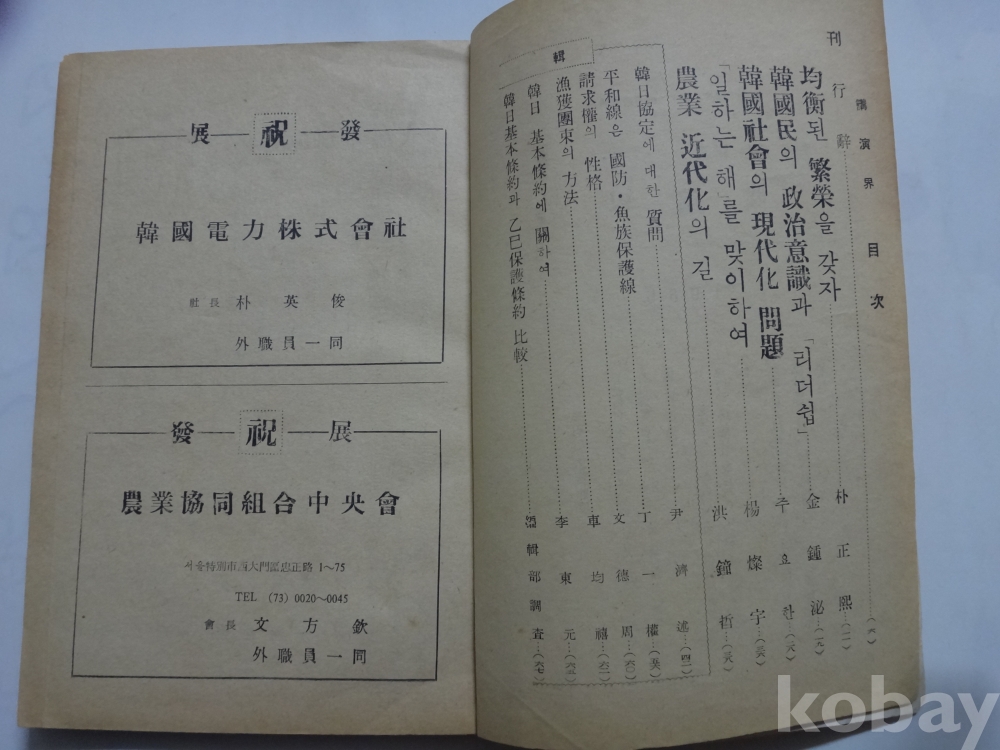 展 祝 發
韓國電力株式會社
社長 朴英俊
外職員一同
發 祝 展
農業協同組合中央會
서울特別市西大門區忠正路 1~75
TEL (73) 0020~0045
會長 文方欽
外職員一同
講演界 目次
刊行辭
均衡된 繁榮을 갖자 朴正熙…(一一)
韓國民의 政治意識과 「리더쉽」 金鍾泌…(一九)
韓國社會의 現代化 問題 주요한…(二八)
「일하는 해」를 맞이하여 楊燦宇…
農業 近代化의 길 洪鐘哲…
輯
韓日協定에 대한 質問 尹濟述…(四一)
平和線은 國防·魚族保護線 丁一權…(五六)
請求權의 性格 文德周…(六〇)
漁獲團束의 方法 車均禧…(六一)
韓日 基本條約에 關하여 李東元…
韓日基本條約과 乙巳保護條約 比較 編輯部調査…(六七)
kobay